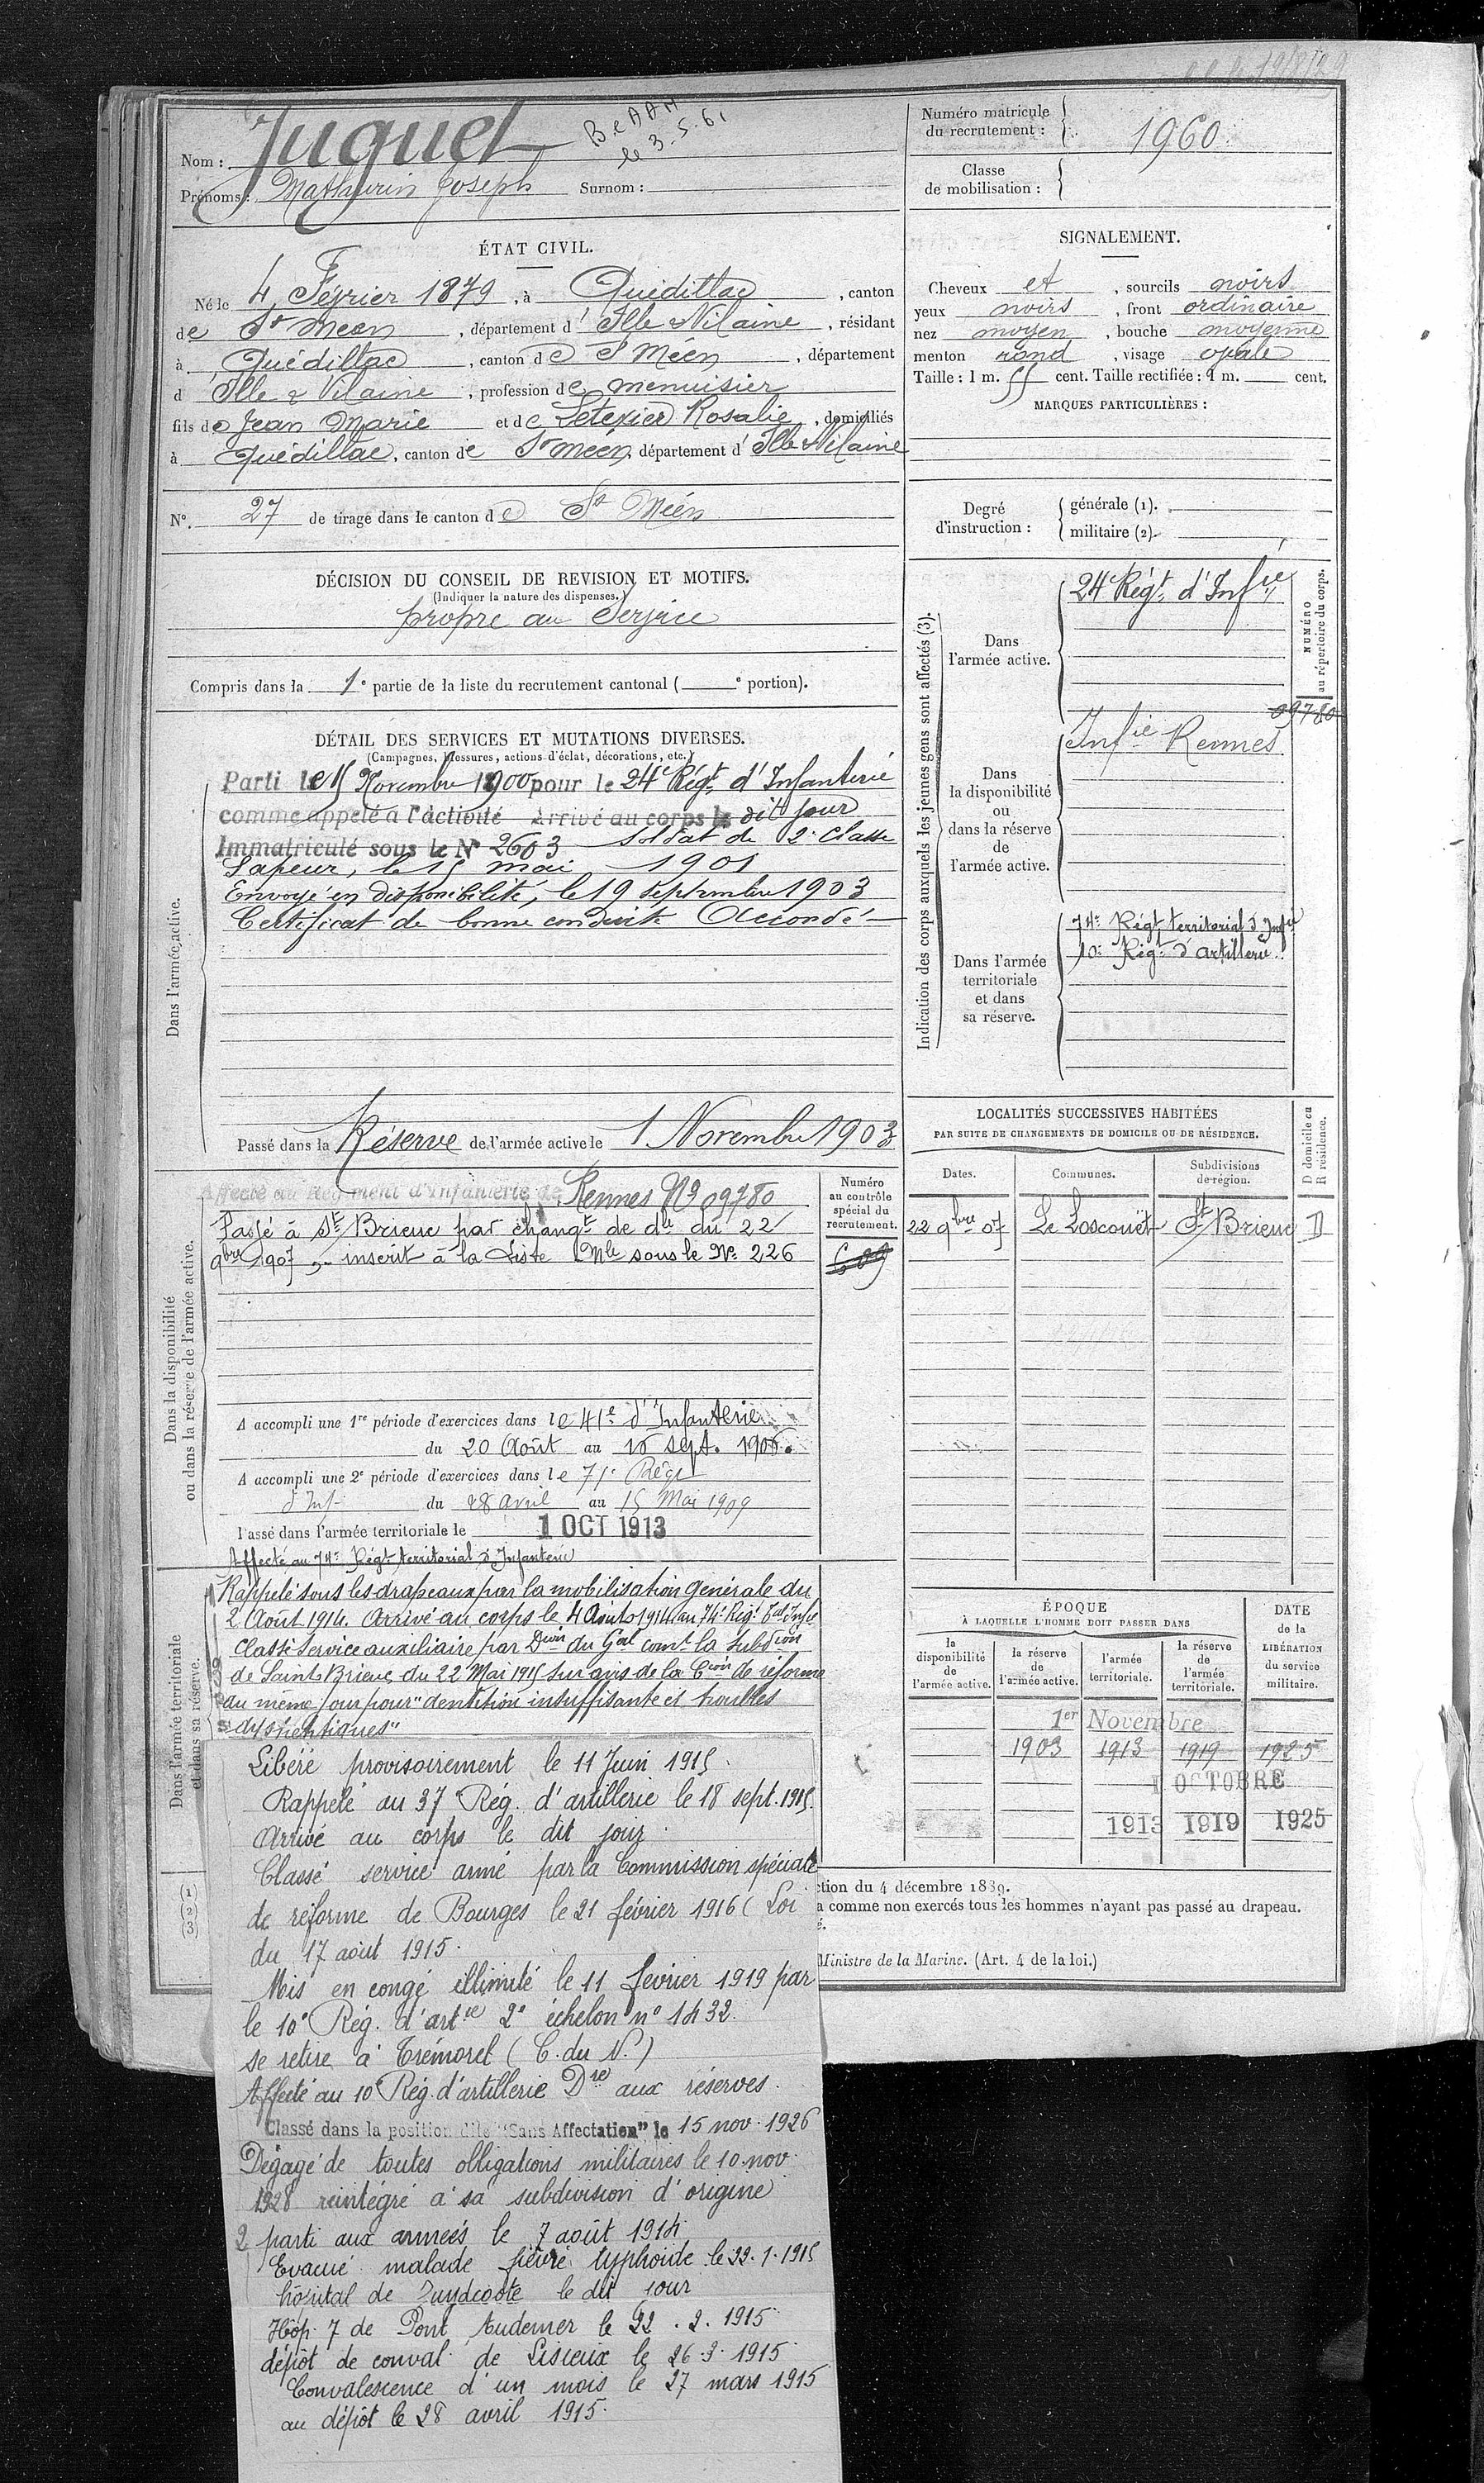 Nom : Juguet
BeAAM
le 3.5.61
Prénoms : Mathurin Joseph Surnom :
ÉTAT CIVIL.
Né le 4 Février 1879, à Quédillac, canton
de St Méen, département d'Ille & Vilaine, résidant
à Quédillac, canton de St Méen, département
d Ille & Vilaine, profession de menuisier
fils de Jean Marie et de Letexier Rosalie, domiciliés
à Quédillac, canton de St Méen, département d'Ille & Vilaine
N°. 27 de tirage dans le canton de St Méen
DÉCISION DU CONSEIL DE REVISION ET MOTIFS.
(Indiquer la nature des dispenses.)
propre au Service
Compris dans la 1e partie de la liste du recrutement cantonal ( e portion).
DÉTAIL DES SERVICES ET MUTATIONS DIVERSES.
(Campagnes, blessures, actions d'éclat, décorations, etc.)
Dans l'armée active.
Parti le 15 Novembre 1900 pour le 24e Régt d'Infanterie
comme appelé à l'activité Arrivé au corps le dit jour
Immatriculé sous le N° 2603 Soldat de 2e Classe
Sapeur, le 15 mai 1901
Envoyé en disponibilité, le 19 septembre 1903
Certificat de bonne conduite Accordé
Passé dans la Réserve de l'armée active le 1 Novembre 1903
Dans la disponibilité
ou dans la réserve de l'armée active.
Affecté au Régiment d'Infanterie de Rennes N° 09780
Passé à St Brieuc par changt de dle du 22
9bre 1907 inscrit à la Liste Mle sous le N° 226
Numéro
au contrôle
spécial du
recrutement.
609
A accompli une 1re période d'exercices dans le 41e d'Infanterie
du 20 Août au 16 Sept. 1906.
A accompli une 2e période d'exercices dans le 71e Régt
d'Inf du 28 avril au 15 Mai 1909
Passé dans l'armée territoriale le 1 OCT 1913
Affecté au 74e Régt territorial d'Infanterie
Dans l'armée territoriale
et dans sa réserve.
Rappelé sous les drapeaux par la mobilisation générale du
2 Août 1914. Arrivé au corps le 4 Août 1914 au 74e Régt Tal Infie
Classé Service auxiliaire par Dion du Gal comt la Subdion
de Saint-Brieuc du 22 Mai 1915 sur avis de la Cion de réforme
du même jour pour "dentition insuffisante et troubles
dyspeptiques"
Libéré provisoirement le 11 Juin 1915.
Rappelé au 37e Rég. d'artillerie le 18 sept. 1915.
Arrivé au corps le dit jour.
Classé service armé par la Commission spéciale
de réforme de Bourges le 21 février 1916 (Loi
du 17 août 1915.
Mis en congé illimité le 11 février 1919 par
le 10e Rég. d'artie 2e échelon n° 1432.
se retire à Trémorel (C. du N.)
Affecté au 10e Rég. d'artillerie Dre aux réserves.
Classé dans la position dite "Sans Affectation" le 15 nov. 1926
Dégagé de toutes obligations militaires le 10 nov.
1928 réintégré à sa subdivision d'origine
2 parti aux armées le 7 août 1914
Evacué malade fièvre typhoïde le 22.1.1915
hôpital de Zuydcoote le dit jour
Hôp. 7 de Pont Audemer le 22.2.1915
dépôt de conval. de Lisieux le 26.3.1915
Convalescence d'un mois le 27 mars 1915
au dépôt le 28 avril 1915.
Numéro matricule
du recrutement : 1960
Classe
de mobilisation :
SIGNALEMENT.
Cheveux et, sourcils noirs
yeux noirs, front ordinaire
nez moyen, bouche moyenne
menton rond, visage ovale
Taille : 1 m. 55 cent. Taille rectifiée : 1 m. cent.
MARQUES PARTICULIÈRES :
Degré
d'instruction :
générale (1).
militaire (2).
Indication des corps auxquels les jeunes gens sont affectés (3).
NUMÉRO
au répertoire du corps.
Dans
l'armée active.
24e Régt d'Infie
09780
Dans
la disponibilité
ou
dans la réserve
de
l'armée active.
Infie Rennes
Dans l'armée
territoriale
et dans
sa réserve.
74e Régt territorial d'Infie
10e Régt d'artillerie
LOCALITÉS SUCCESSIVES HABITÉES
PAR SUITE DE CHANGEMENTS DE DOMICILE OU DE RÉSIDENCE.
D domicile ou
R résidence.
Dates. Communes. Subdivisions
de région.
22 9bre 07 Le Loscouët St Brieuc D
ÉPOQUE
À LAQUELLE L'HOMME DOIT PASSER DANS
DATE
de la
LIBÉRATION
du service
militaire.
la
disponibilité
de
l'armée active.
la réserve
de
l'armée active.
l'armée
territoriale.
la réserve
de
l'armée
territoriale.
1er Novembre
1903 1913 1919 1925
1 OCTOBRE
1913 1919 1925
(1)
(2)
(3)
ction du 4 décembre 1889.
a comme non exercés tous les hommes n'ayant pas passé au drapeau.
é.
Ministre de la Marine. (Art. 4 de la loi.)